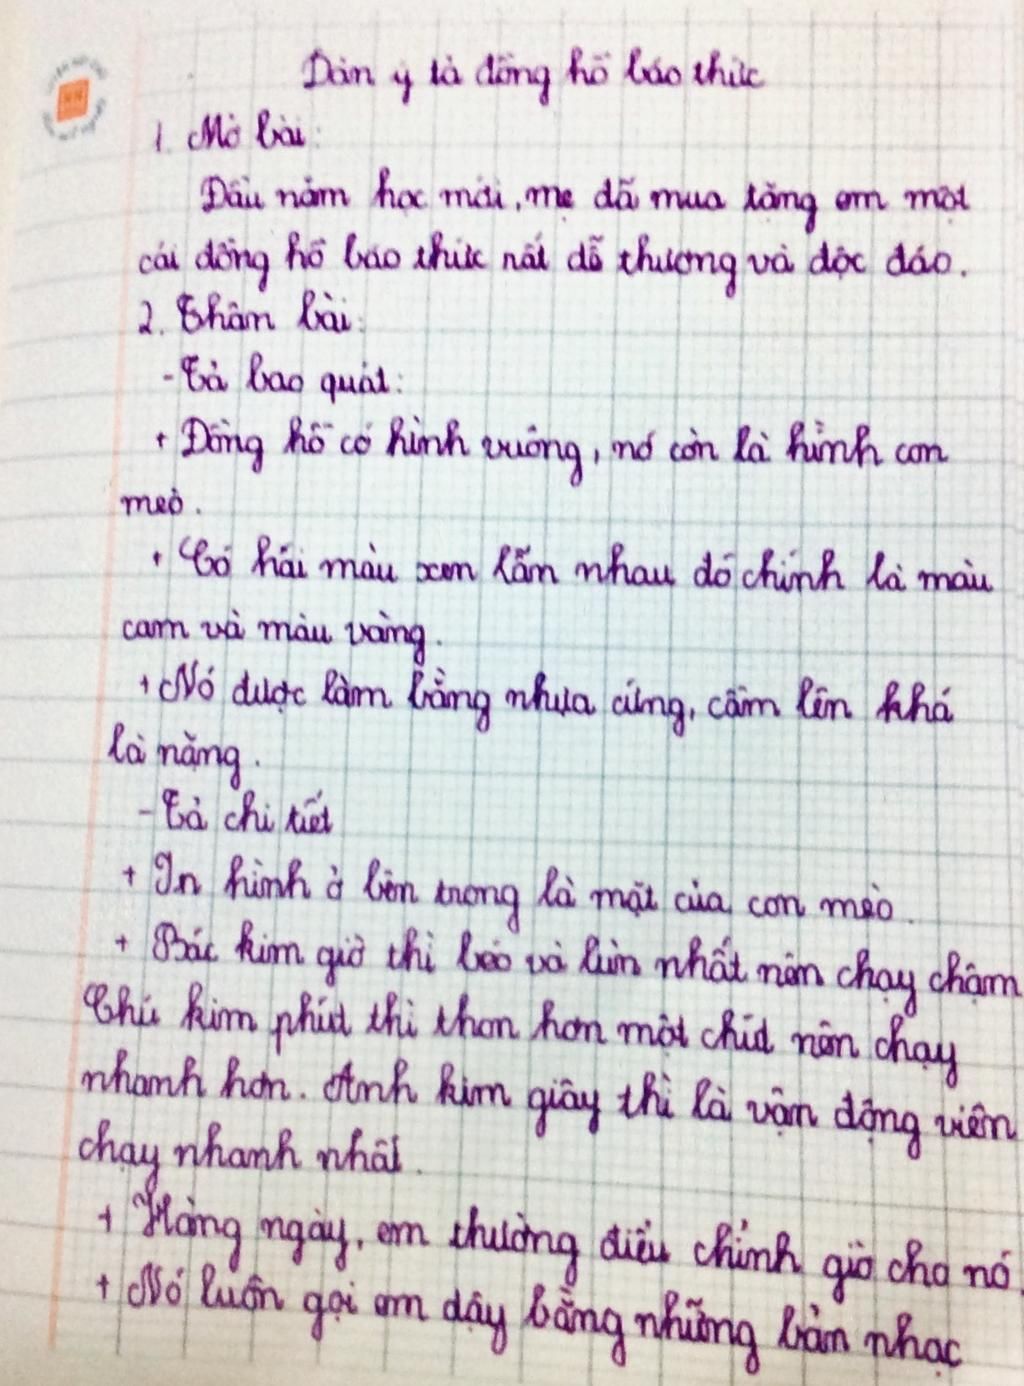 Dàn ý tả đồng hồ báo thức
1. Mở bài:
Đầu năm học mới, mẹ đã mua tặng em một
cái đồng hồ báo thức rất dễ thương và độc đáo.
2. Thân bài:
- Tả bao quát:
+ Đồng hồ có hình vuông, nó còn là hình con
mèo.
+ Có hai màu xen lẫn nhau đó chính là màu
cam và màu vàng.
+ Nó được làm bằng nhựa cứng, cầm lên khá
là nặng.
- Tả chi tiết
+ In hình ở bên trong là mặt của con mèo.
+ Bác kim giờ thì béo và lùn nhất nên chạy chậm
Chú kim phút thì thon hơn một chút nên chạy
nhanh hơn. Anh kim giây thì là vận động viên
chạy nhanh nhất.
+ Hàng ngày, em thường điều chỉnh giờ cho nó.
+ Nó luôn gọi em dậy bằng những bản nhạc